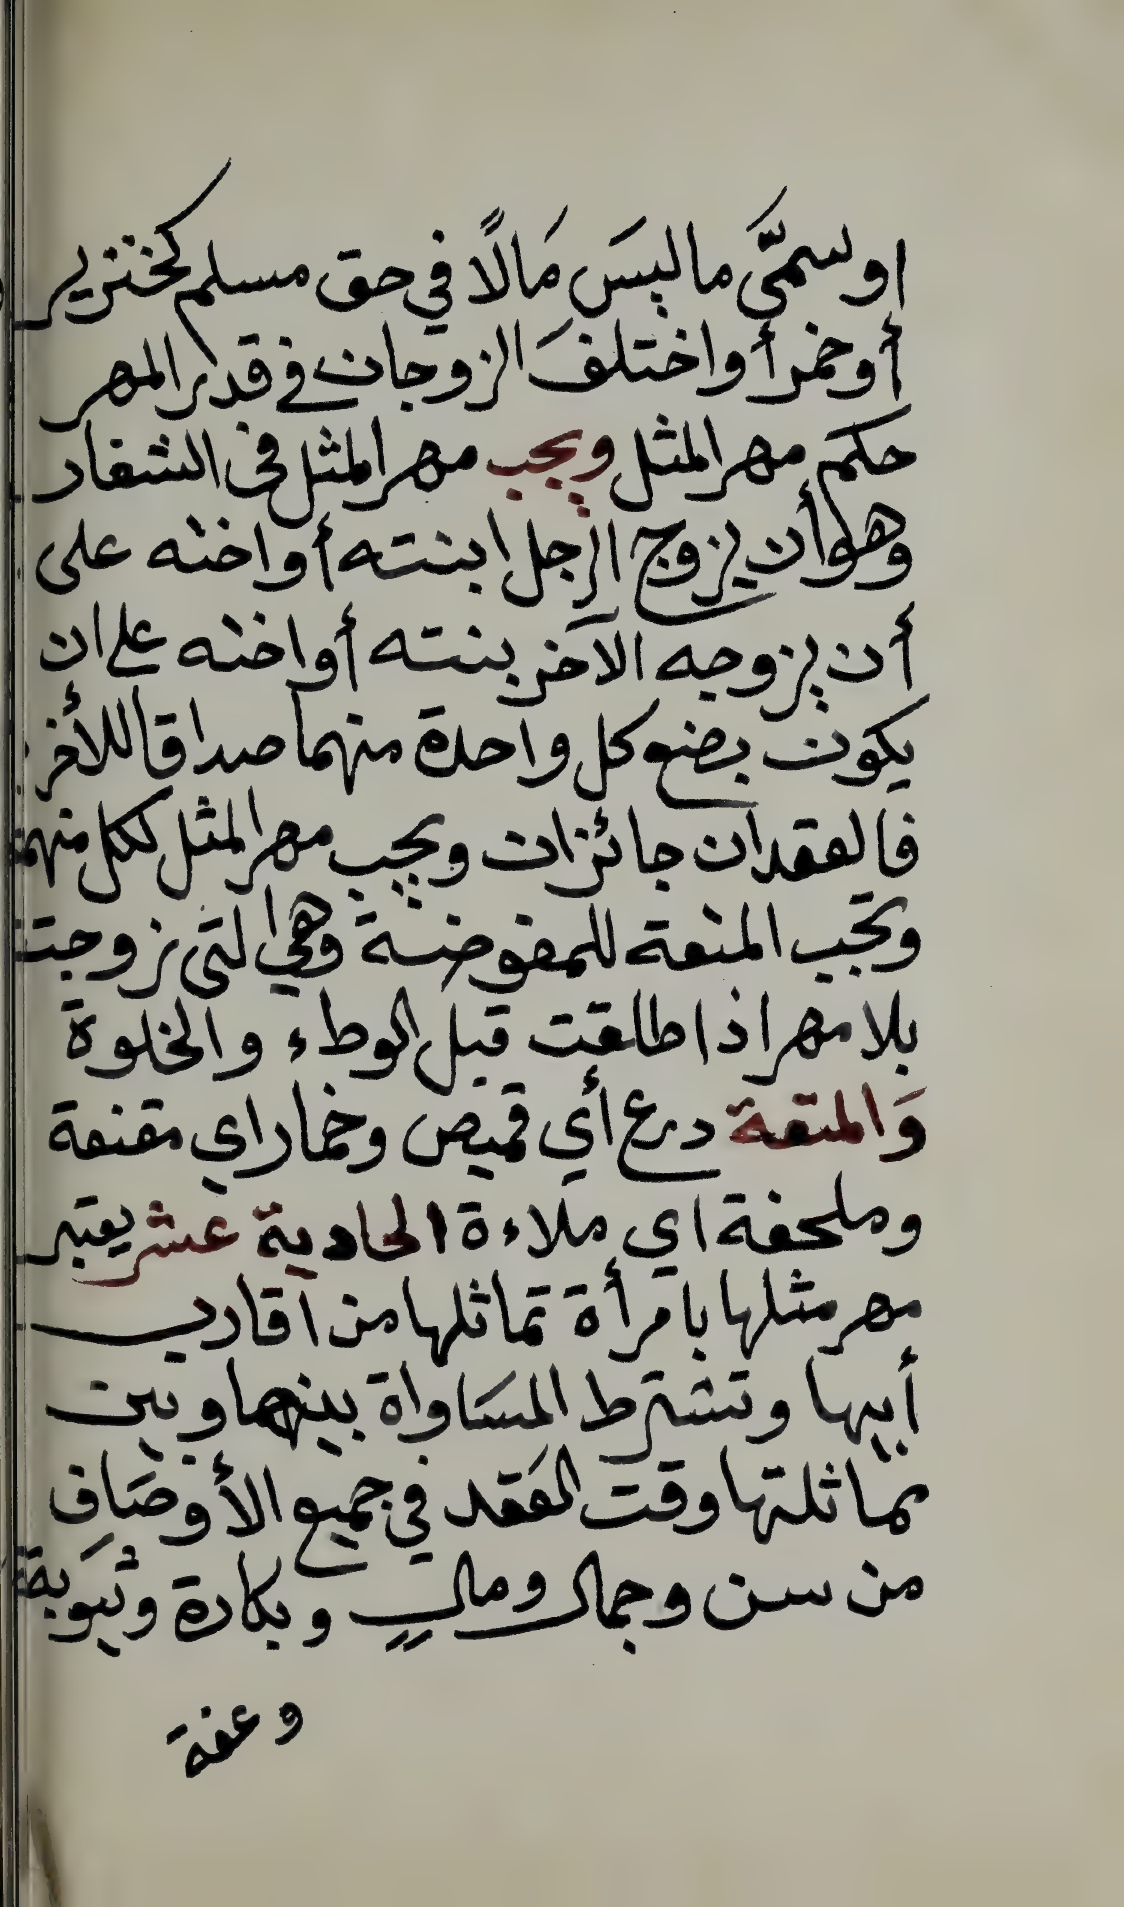 او سمَّى ما ليسَ مَالًا في حق مسلم كخنزير
أو خمر أو اختلفَ الزوجان في قدر المهر
حكم مهر المثل ويجب مهر المثل في الشغار
وهو أن يزوج الرجل ابنته أو اخته على
أن يزوجه الآخر بنته أو اخته على ان
يكون بضع كل واحدة منهما صداقا للأخرى
فالعقدان جائزان ويجب مهر المثل لكل منهما
وتجب المتعة للمفوضة وهي التي زوجت
بلا مهر اذا طلقت قبل الوطء والخلوة
وَالمتعة درع أي قميص وخمار اي مقنعة
وملحفة اي ملاءة الحادية عشر يعتبر
مهر مثلها بامرأة تماثلها من أقارب
أبيها وتشترط المسَاواة بينهما وبين
مماثلتها وقت العَقد في جميع الأوصَاف
من سن وجمال ومال وبكارة وثيوبة
وعفة